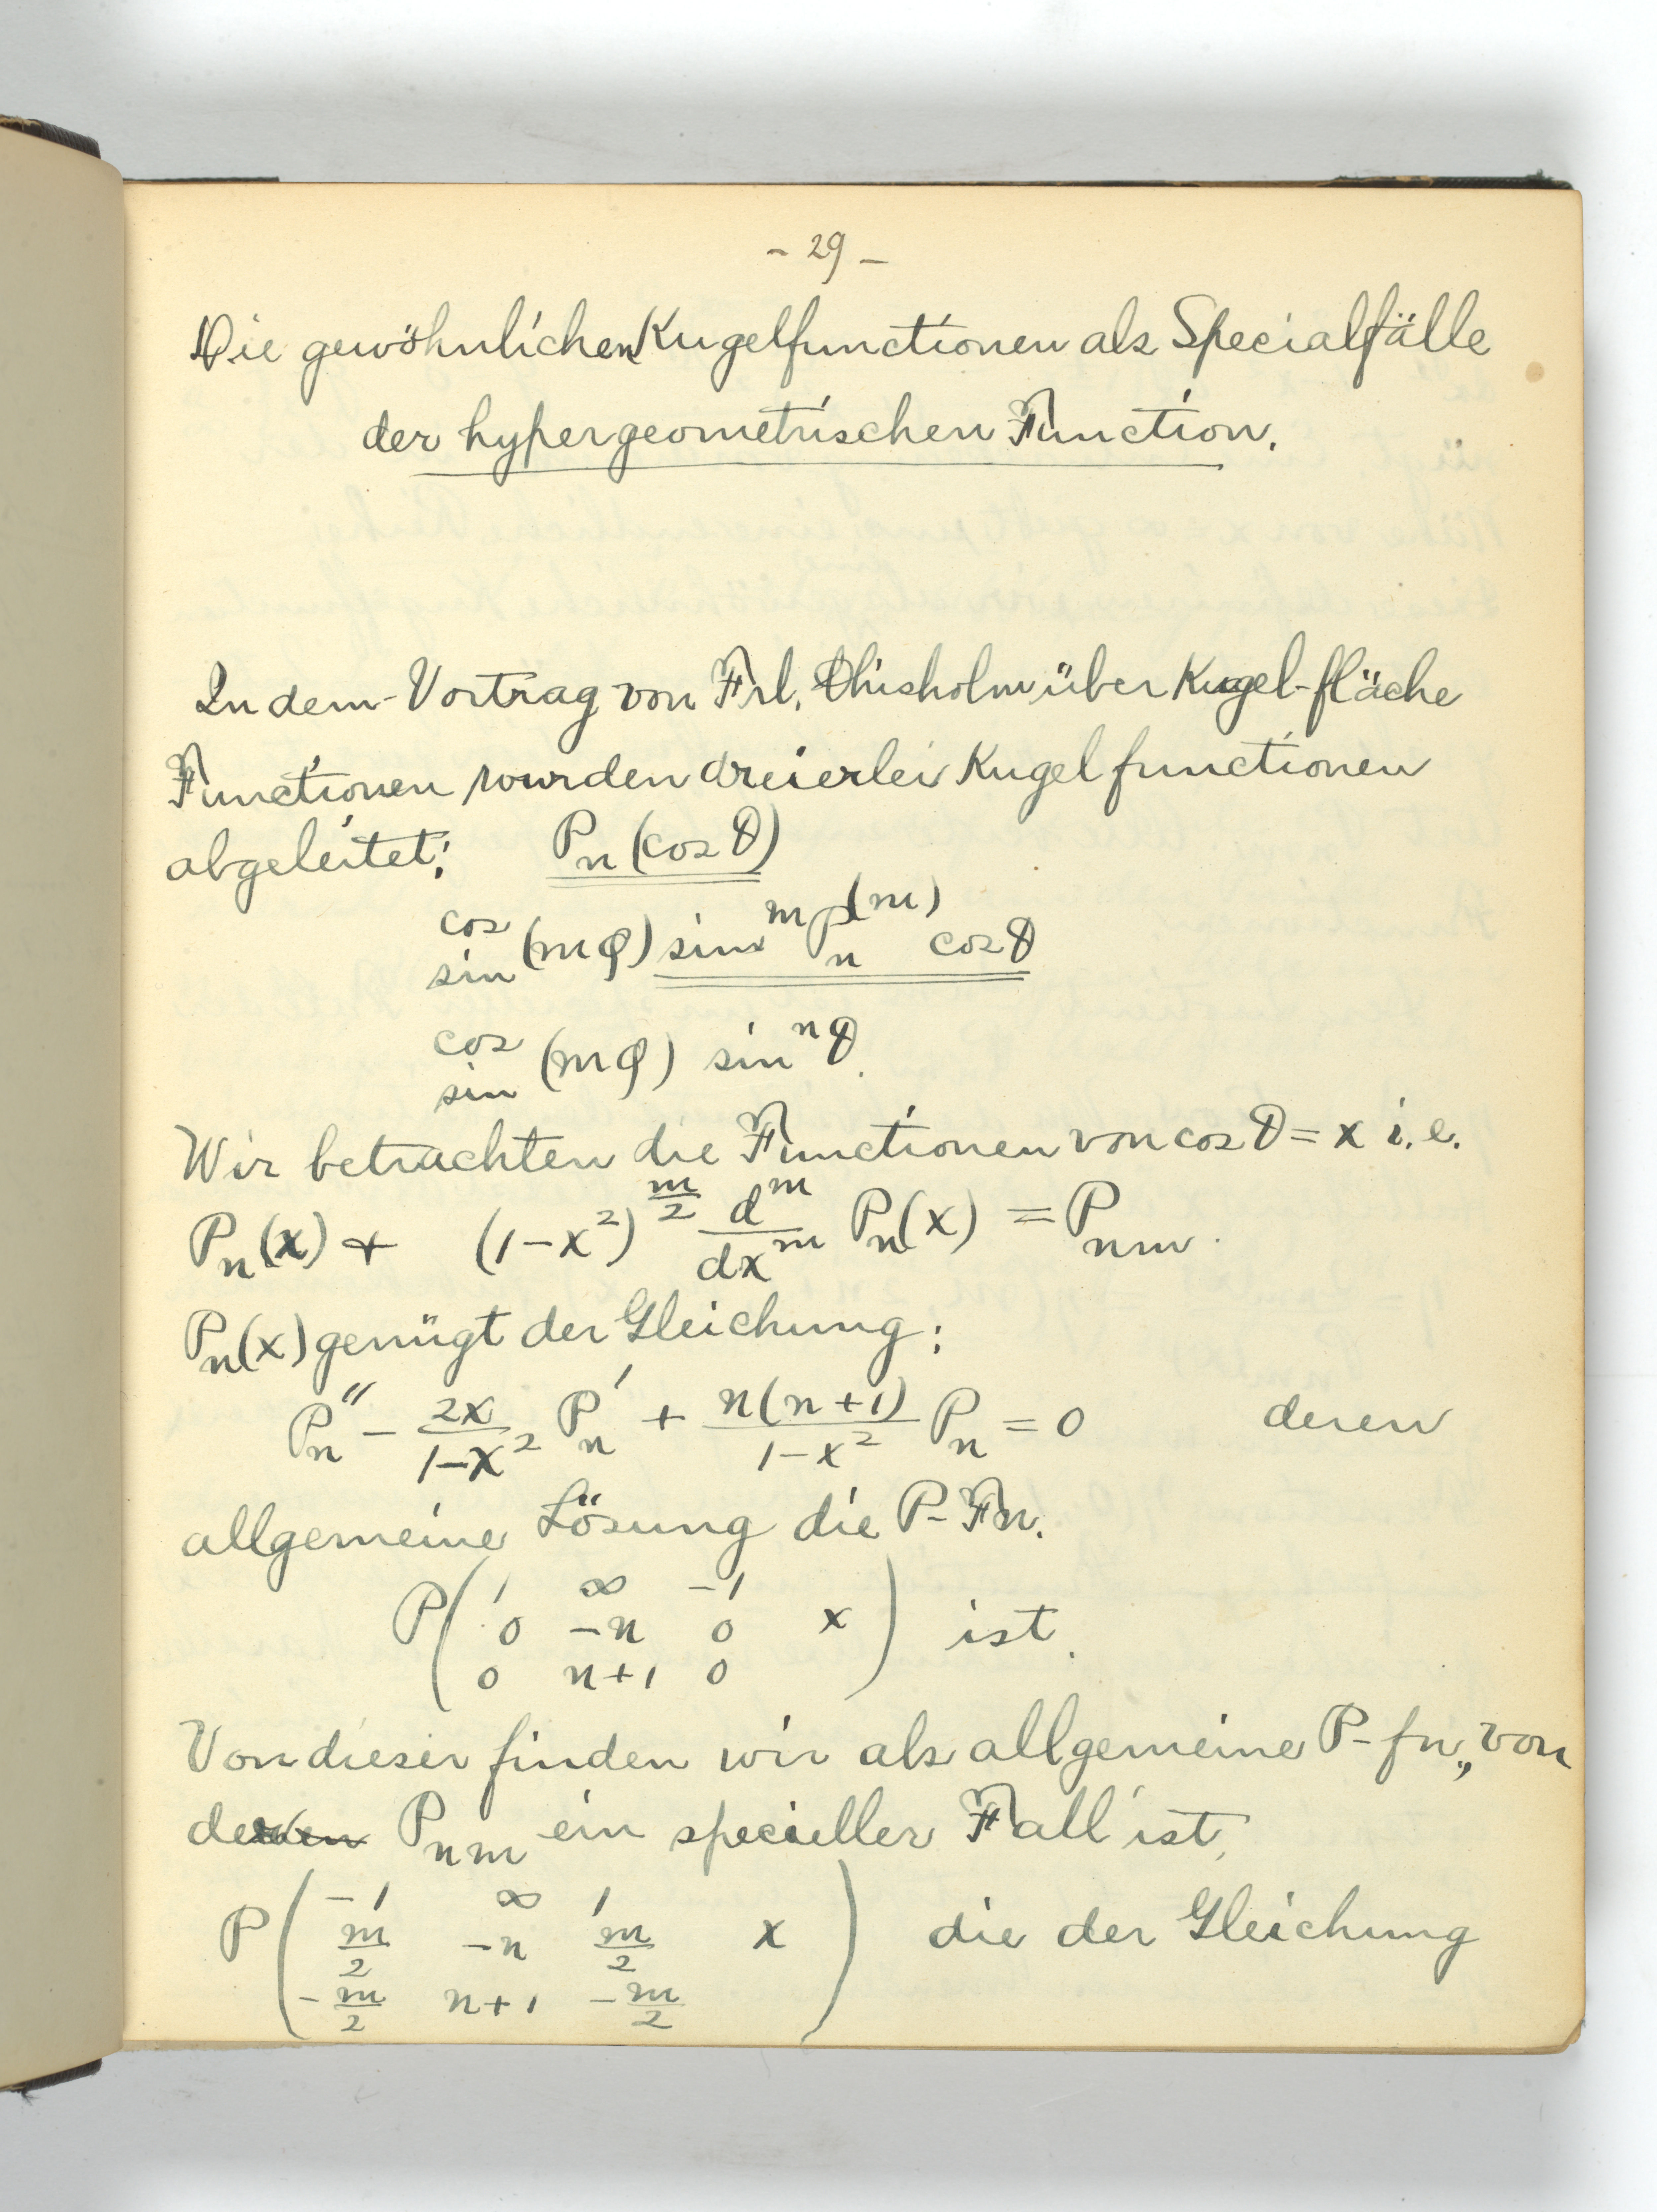 - 29 -
Die gewöhnlichen Kugelfunctionen als Specialfälle
der hypergeometrischen Function.
In dem Vortrag von Frl. Chisholm über Kugel-fläche
Functionen wurden dreierlei Kugelfunctionen
abgeleitet: Pₙ(cos θ)
cos/sin (mφ) sinᵐ Pₙ⁽ᵐ⁾ cos θ
cos/sin (mφ) sinⁿ θ.
Wir betrachten die Functionen von cos θ = x i.e.
Pₙ(x) + (1-x²)^(m/2) dᵐ/dxᵐ Pₙ(x) = Pₙₘ.
Pₙ(x) genügt der Gleichung:
Pₙ'' - 2x/(1-x²) Pₙ' + n(n+1)/(1-x²) Pₙ = 0 deren
allgemeine Lösung die P-Fn.
P( 1 ∞ -1
0 -n 0 x ) ist.
0 n+1 0
Von dieser finden wir als allgemeine P-fn., von
der Pₙₘ ein specieller Fall ist,
P( -1 ∞ 1
m/2 -n m/2 x ) die der Gleichung
-m/2 n+1 -m/2